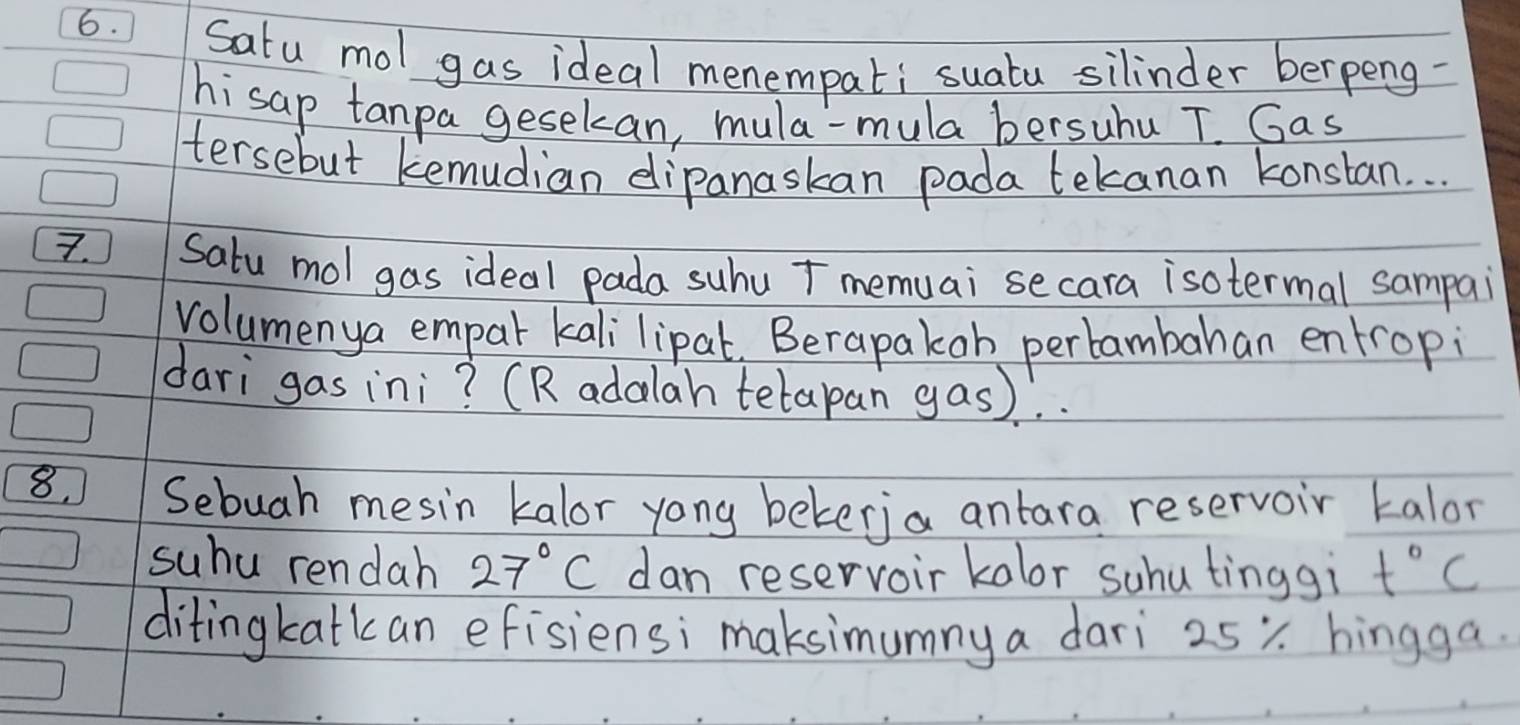 6. Satu mol gas ideal menempati suatu silinder berpeng-
hisap tanpa gesekan, mula-mula bersuhu T. Gas
tersebut kemudian dipanaskan pada tekanan konstan...
7. Satu mol gas ideal pada suhu T memuai secara isotermal sampai
volumenya empat kali lipat. Berapakah pertambahan entropi
dari gas ini? (R adalah tetapan gas)...
8. Sebuah mesin kalor yang bekerja antara reservoir kalor
suhu rendah 27°C dan reservoir kalor suhu tinggi t°C
ditingkatkan efisiensi maksimumnya dari 25% hingga.